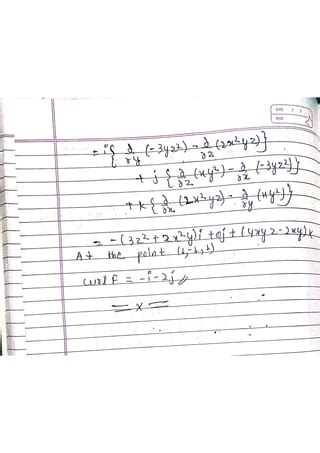 DATE
PAGE
= i{∂/∂y (-3yz²) - ∂/∂z (2x²yz)}
+ j{∂/∂z (xy²) - ∂/∂x (-3yz²)}
+ k{∂/∂x (2x²yz) - ∂/∂y (xy²)}
= -(3z²+2x²y)i + 0j + (4xyz-2xy)k
At the point (1,-1,1)
curl F = -i-2j
= x =